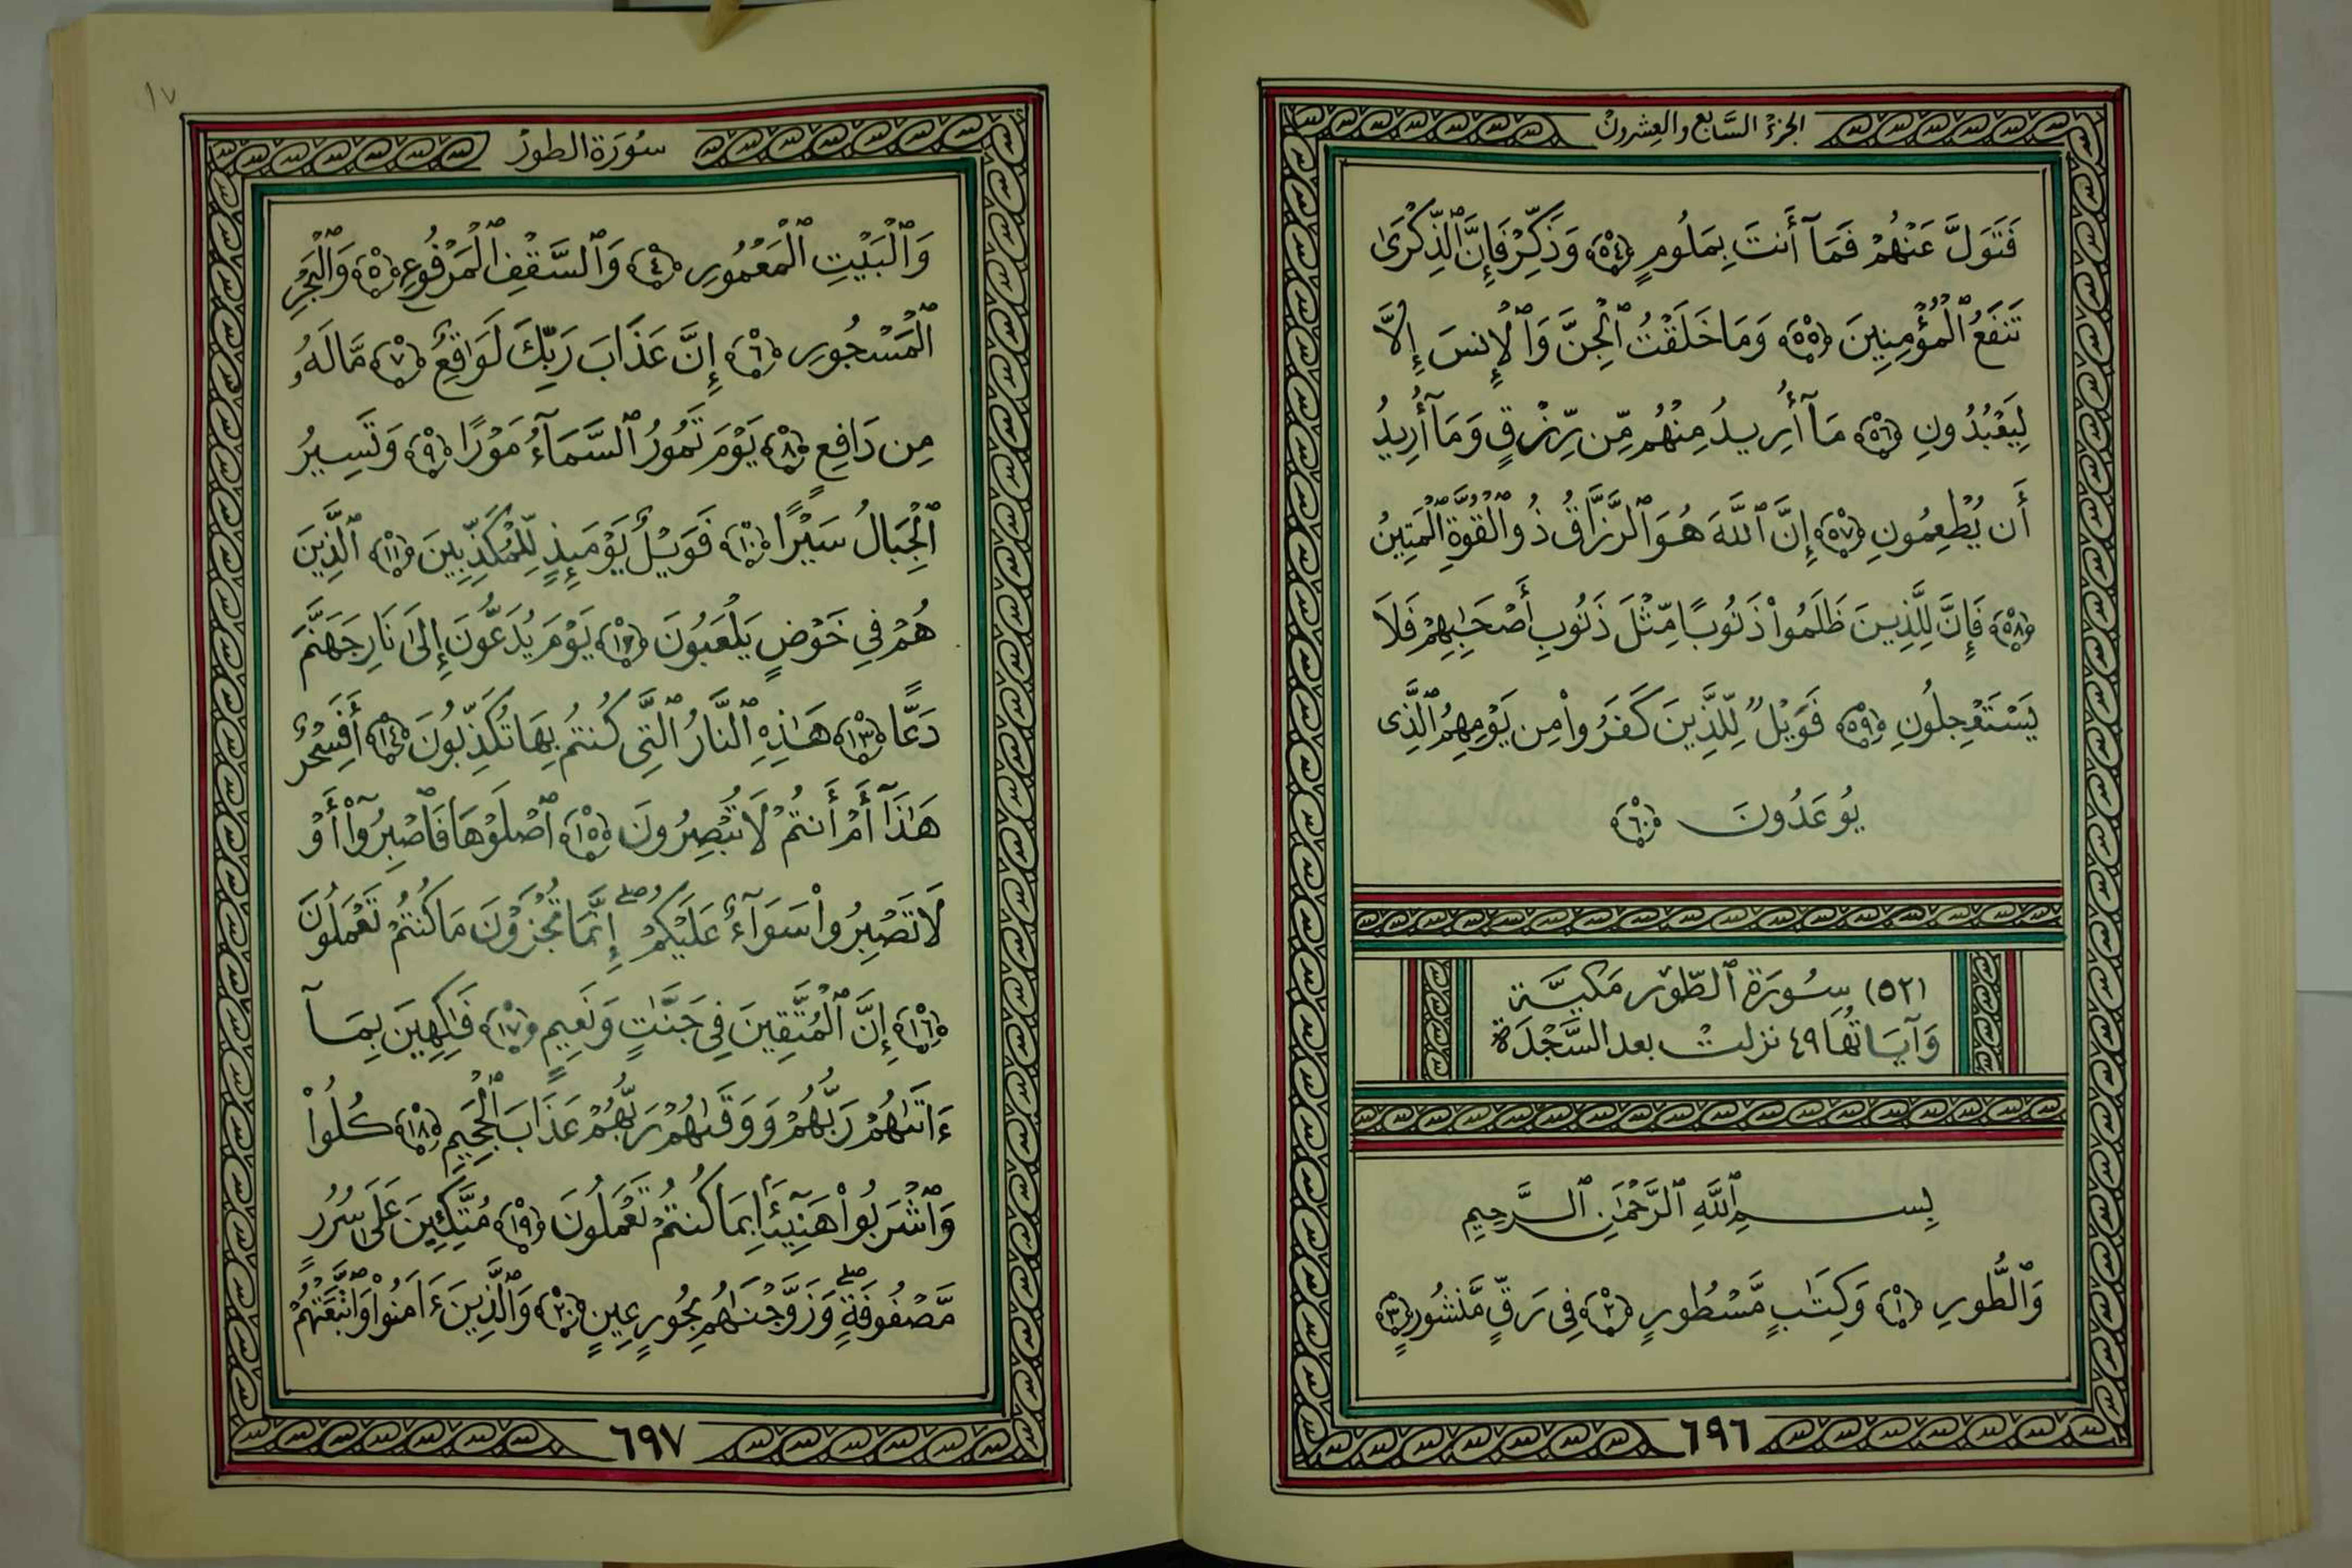 الجزء السَّابع والعِشرونْ
فَتَوَلَّ عَنْهُمْ فَمَآ أَنتَ بِمَلُومٍ ﴿٥٤﴾ وَذَكِّرْ فَإِنَّ ٱلذِّكْرَىٰ
تَنفَعُ ٱلْمُؤْمِنِينَ ﴿٥٥﴾ وَمَا خَلَقْتُ ٱلْجِنَّ وَٱلْإِنسَ إِلَّا
لِيَعْبُدُونِ ﴿٥٦﴾ مَآ أُرِيدُ مِنْهُم مِّن رِّزْقٍ وَمَآ أُرِيدُ
أَن يُطْعِمُونِ ﴿٥٧﴾ إِنَّ ٱللَّهَ هُوَ ٱلرَّزَّاقُ ذُو ٱلْقُوَّةِ ٱلْمَتِينُ
﴿٥٨﴾ فَإِنَّ لِلَّذِينَ ظَلَمُواْ ذَنُوبًا مِّثْلَ ذَنُوبِ أَصْحَٰبِهِمْ فَلَا
يَسْتَعْجِلُونِ ﴿٥٩﴾ فَوَيْلٌ لِّلَّذِينَ كَفَرُواْ مِن يَوْمِهِمُ ٱلَّذِى
يُوعَدُونَ ﴿٦٠﴾
(٥٢) سُورَة ٱلطّوْر مَكيَّة
وَآيَاتُهَا ٤٩ نزلتْ بعد السَّجْدَة
بِسْمِ ٱللَّهِ ٱلرَّحْمَٰنِ ٱلرَّحِيمِ
وَٱلطُّورِ ﴿١﴾ وَكِتَٰبٍ مَّسْطُورٍ ﴿٢﴾ فِى رَقٍّ مَّنشُورٍ ﴿٣﴾
٦٩٦
١٧
سُورَة الطورْ
وَٱلْبَيْتِ ٱلْمَعْمُورِ ﴿٤﴾ وَٱلسَّقْفِ ٱلْمَرْفُوعِ ﴿٥﴾ وَٱلْبَحْرِ
ٱلْمَسْجُورِ ﴿٦﴾ إِنَّ عَذَابَ رَبِّكَ لَوَٰقِعٌ ﴿٧﴾ مَّا لَهُۥ
مِن دَافِعٍ ﴿٨﴾ يَوْمَ تَمُورُ ٱلسَّمَآءُ مَوْرًا ﴿٩﴾ وَتَسِيرُ
ٱلْجِبَالُ سَيْرًا ﴿١٠﴾ فَوَيْلٌ يَوْمَئِذٍ لِّلْمُكَذِّبِينَ ﴿١١﴾ ٱلَّذِينَ
هُمْ فِى خَوْضٍ يَلْعَبُونَ ﴿١٢﴾ يَوْمَ يُدَعُّونَ إِلَىٰ نَارِ جَهَنَّمَ
دَعًّا ﴿١٣﴾ هَٰذِهِ ٱلنَّارُ ٱلَّتِى كُنتُم بِهَا تُكَذِّبُونَ ﴿١٤﴾ أَفَسِحْرٌ
هَٰذَآ أَمْ أَنتُمْ لَا تُبْصِرُونَ ﴿١٥﴾ ٱصْلَوْهَا فَٱصْبِرُوٓاْ أَوْ
لَا تَصْبِرُواْ سَوَآءٌ عَلَيْكُمْ ۖ إِنَّمَا تُجْزَوْنَ مَا كُنتُمْ تَعْمَلُونَ
﴿١٦﴾ إِنَّ ٱلْمُتَّقِينَ فِى جَنَّٰتٍ وَنَعِيمٍ ﴿١٧﴾ فَٰكِهِينَ بِمَآ
ءَاتَىٰهُمْ رَبُّهُمْ وَوَقَىٰهُمْ رَبُّهُمْ عَذَابَ ٱلْجَحِيمِ ﴿١٨﴾ كُلُواْ
وَٱشْرَبُواْ هَنِيٓـًٔا بِمَا كُنتُمْ تَعْمَلُونَ ﴿١٩﴾ مُتَّكِـِٔينَ عَلَىٰ سُرُرٍ
مَّصْفُوفَةٍ ۖ وَزَوَّجْنَٰهُم بِحُورٍ عِينٍ ﴿٢٠﴾ وَٱلَّذِينَ ءَامَنُواْ وَٱتَّبَعَتْهُمْ
٦٩٧